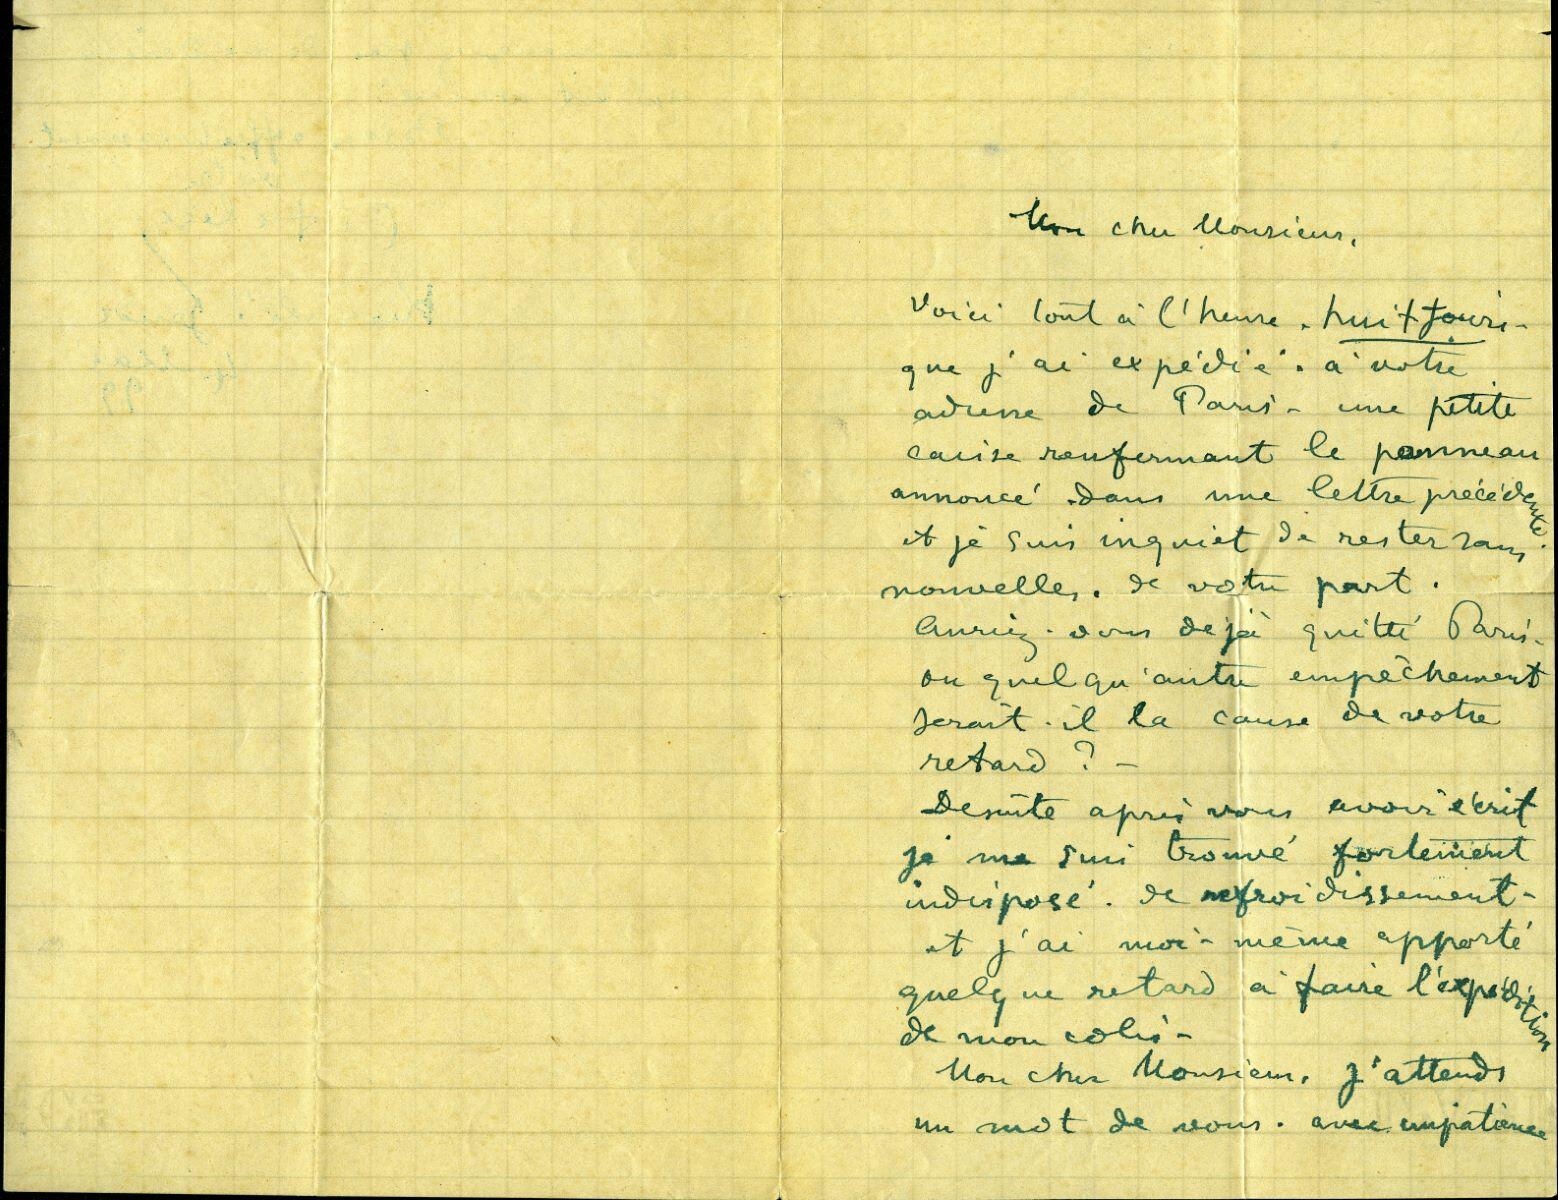 Mon cher Monsieur,
Voici tout à l'heure. huit jours-
que j'ai expédié. à votre
adresse de Paris- une petite
caisse renfermant le panneau
annoncé dans une lettre précédente.
et je suis inquiet de rester sans
nouvelles. de votre part.
Auriez-vous déjà quitté Paris-
ou quelqu'autre empêchement
serait-il la cause de votre
retard ? -
Desuite après vous avoir écrit
je me suis trouvé fortement
indisposé. de refroidissement-
et j'ai moi-même apporté
quelque retard à faire l'expédition
de mon colis-
Mon cher Monsieur, j'attends
un mot de vous. avec impatience